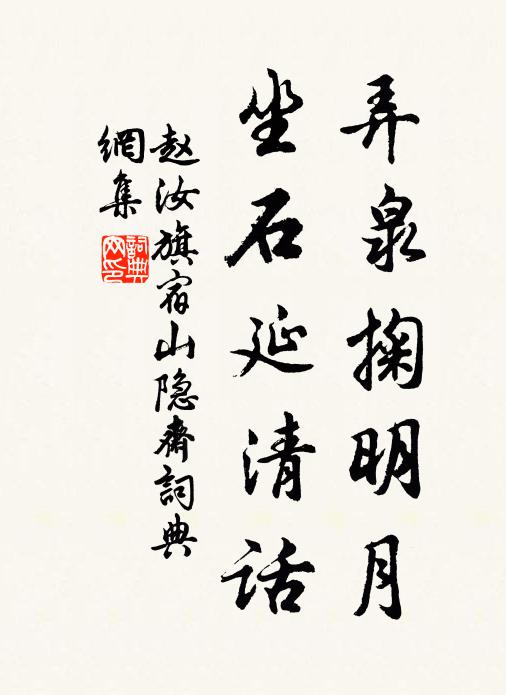 弄泉掬明月
坐石延清话
赵汝旗宿山隐斋詞典
網集
詞典
网印